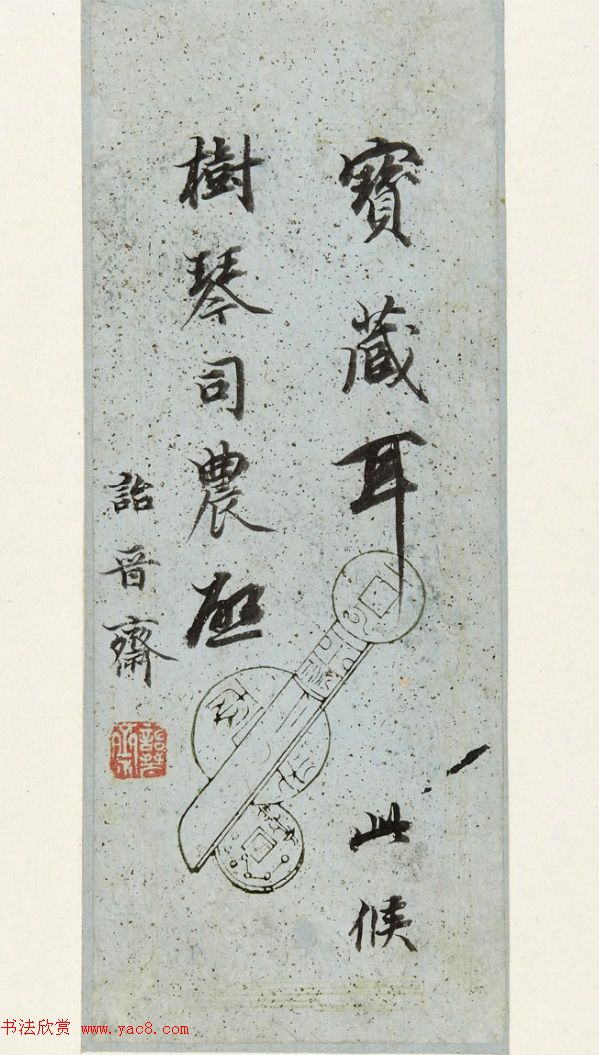 寶藏耳
此候
樹琴司農
詒晉齋
书法欣赏 www.yac8.com